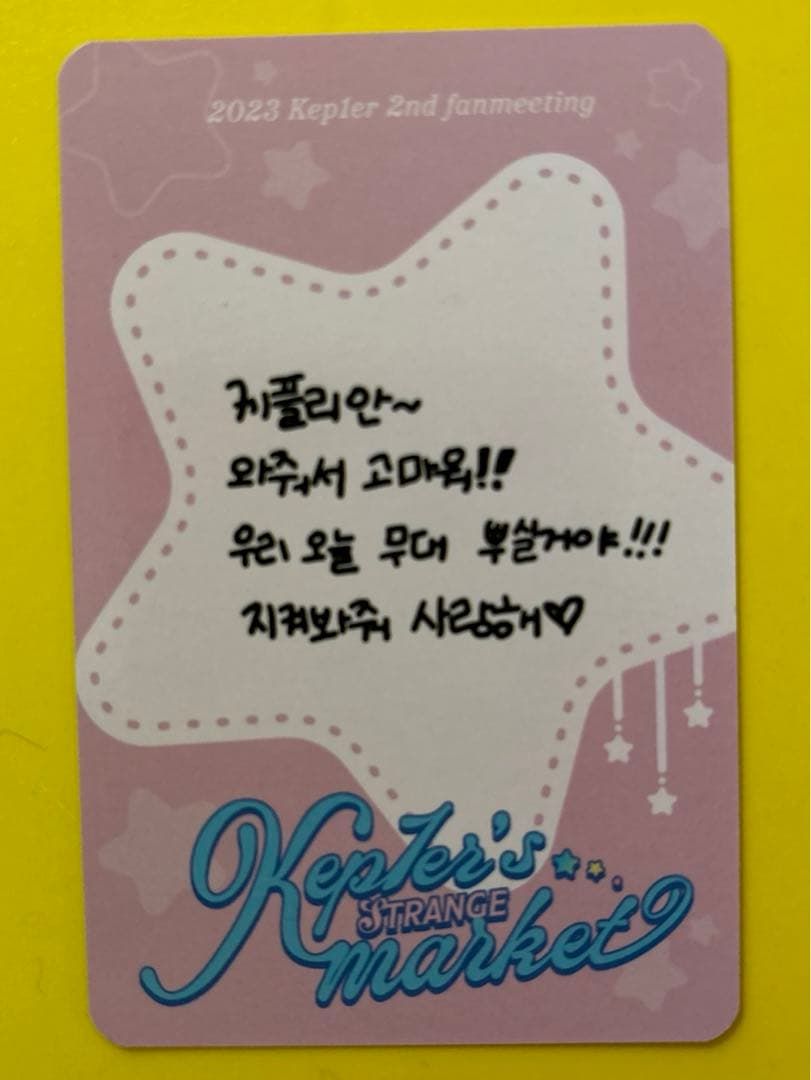 2023 Kep1er 2nd fanmeeting
케플리안~
와줘서 고마워!!
우리 오늘 무대 뿌실거야!!!
지켜봐줘 사랑해♡
Kep1er's
STRANGE
market